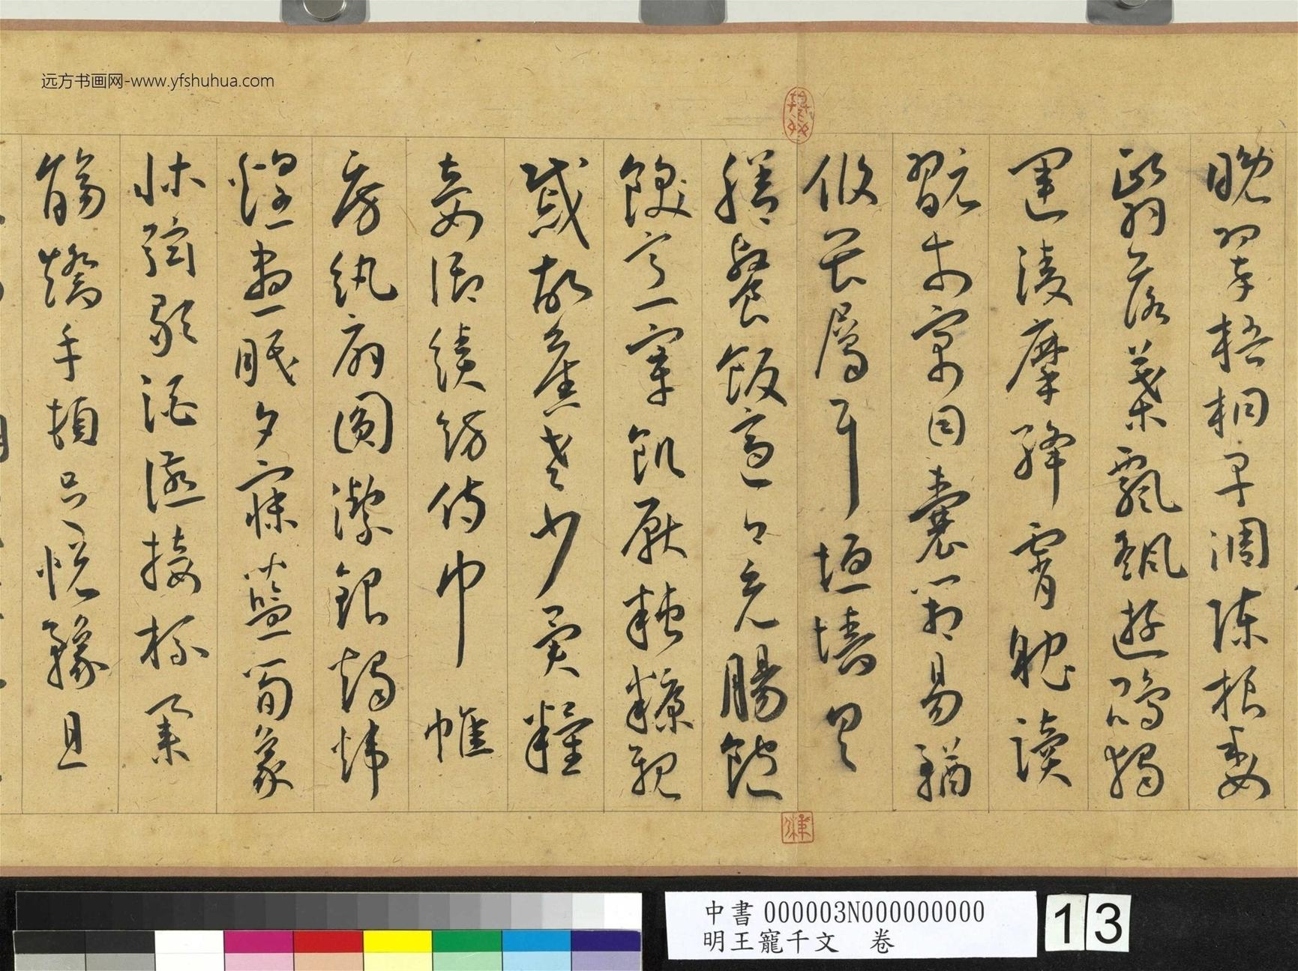 远方书画网-www.yfshuhua.com
晚翠梧桐早凋陳根委
翳落葉飄颻遊鵾獨
運淩摩絳霄耽讀
翫市寓目囊箱易輶
攸畏屬耳垣墻具
膳飡飯適口充腸飽
飫烹宰飢厭糟糠親
戚故舊老少異糧
妾御績紡侍巾帷
房紈扇圓潔銀燭煒
煌晝眠夕寐藍筍象
牀弦歌酒讌接杯舉
觴矯手頓足悅豫且
中書 000003N000000000
明王寵千文 卷
13